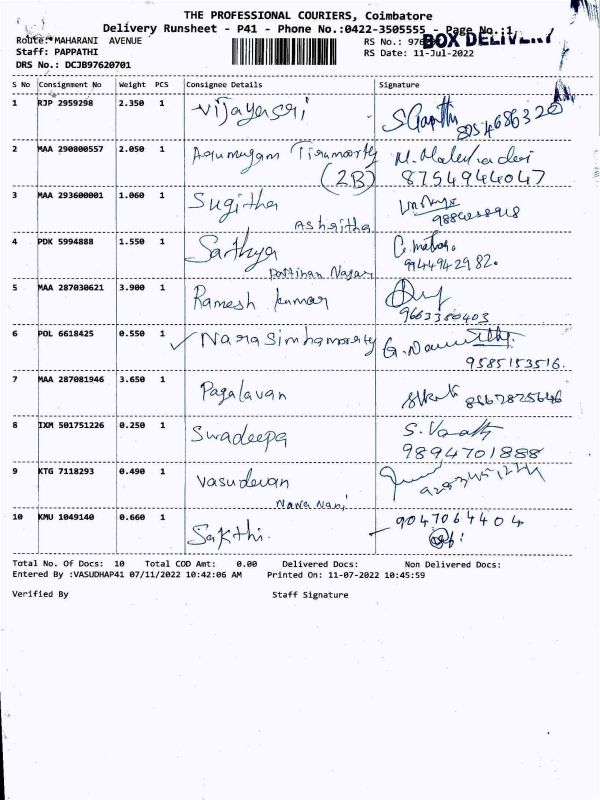 THE PROFESSIONAL COURIERS, Coimbatore
Delivery Runsheet - P41 - Phone No.:0422-3505555 - Page No.:1
Route: MAHARANI AVENUE RS No.: BOX DELIVERY
Staff: PAPPATHI RS Date: 11-Jul-2022
DRS No.: DCJB97620701
S No Consignment No Weight PCS Consignee Details Signature
1 RJP 2959298 2.350 1 Vijayasri
2 MAA 290800557 2.050 1 Arumugam Tirumoorthy
(2B) 8754944047
3 MAA 293600001 1.060 1 Sugitha
Ashritha
4 PDK 5994888 1.550 1 Sathya
Pattinan Nagar 9944942982.
5 MAA 287030621 3.900 1 Ramesh kumar
9663380403
6 POL 6618425 0.550 1 Narasimhamoorthy
9585153516.
7 MAA 287081946 3.650 1 Pagalavan 8667825646
8 IXM 501751226 0.250 1 Swadeepa
9894701888
9 KTG 7118293 0.490 1 Vasudevan
Nava Nani
10 KMU 1049140 0.660 1 Sakthi. 9047064404
Total No. Of Docs: 10 Total COD Amt: 0.00 Delivered Docs: Non Delivered Docs:
Entered By :VASUDHAP41 07/11/2022 10:42:06 AM Printed On: 11-07-2022 10:45:59
Verified By Staff Signature